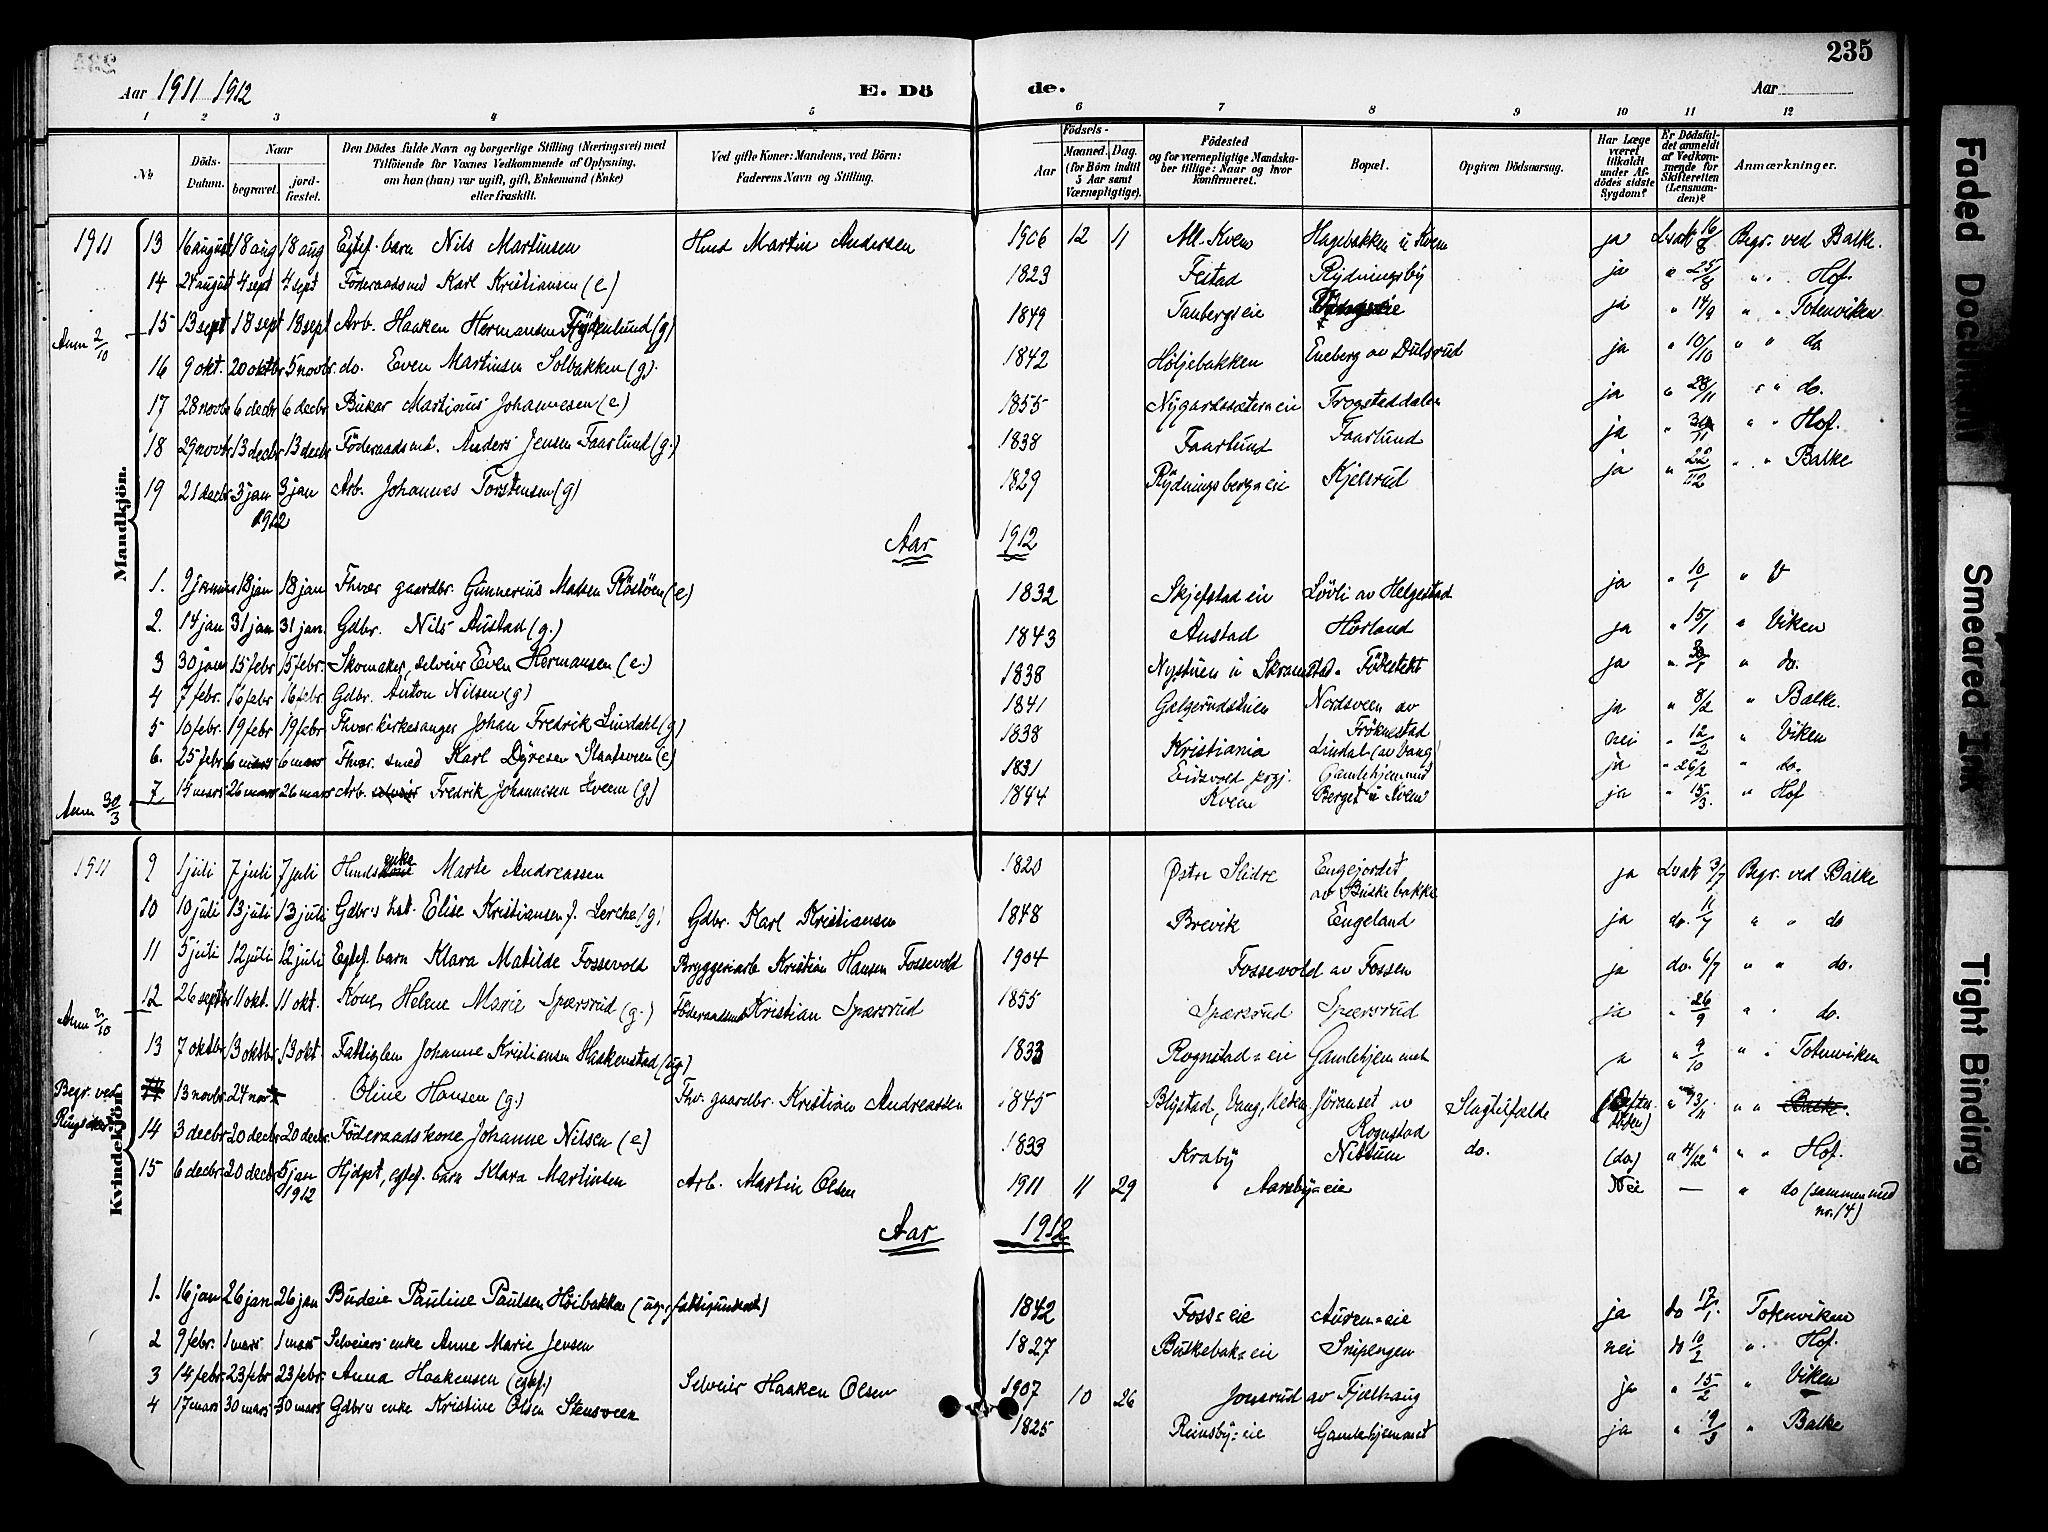 235
Aar 1911 1912
E. Döde.
Aar
1 2 3 4 5 6 7 8 9 10 11 12
No
Döds-Datum.
Naar
begravet.
jordfæstet.
Den Dödes fulde Navn og borgerlige Stilling (Næringsvei) med Tilföiende for Voxnes Vedkommende af Oplysning, om han (hun) var ugift, gift, Enkemand (Enke) eller fraskilt.
Ved gifte Koner: Mandens, ved Börn: Faderens Navn og Stilling.
Födsels-
Aar
Maaned. Dag.
(for Börn indtil 5 Aar samt Værnepligtige).
Födested og for værnepligtige Mandskaber tillige: Naar og hvor konfirmeret.
Bopæl.
Opgiven Dödsaarsag.
Har Læge været tilkaldt under Afdödes sidste Sygdom?
Er Dödsfaldet anmeldt af Vedkommende for Skifteretten (Lensmanden)?
Anmærkninger.
Mandkjön.
1911 13 16 august 18 aug 18 aug Egtef. barn Nils Martinsen Husmd Martin Andersen 1906 12 11 All. Kvem Hagebakken u Kvem ja Lvatt 16/8 Begr. ved Balke.
14 24 august 4 sept 4 sept Föderaadsmd Karl Kristiansen (e) 1823 Festad Rydningsby ja " 25/8 " " Hof.
Anm 2/10 15 13 sept 18 sept 18 sept Arb. Haaken Hermansen Frydenlund (g) 1849 Taubergseie ja " 14/9 " " Totenviken
16 9 okt. 20 oktbr 5 novbr. do. Even Martinsen Solbakken (g). 1842 Höljebakken Eneberg av Dulsrud ja " 10/10 " " do
17 28 novb 6 decbr 6 decbr Büker Martinus Johannesen (e) 1855 Nygardssæterneie Frogstaddalen ja " 28/11 " " do.
18 29 novbr. 13 decbr 13 decbr Föderaadsmd. Anders Jensen Faarlund (g.) 1838 Faarlund Faarlund ja " 30/11 " " Hof.
19 21 decbr. 3 jan 1912 3 jan Arb. Johannes Torstensen (g) 1829 Rydningsberg=eie Kjelsrud ja " 22/12 " " Balke
Aar 1912
1. 9 januar 18 jan 18 jan Fhver gaardbr. Gunnerius Madsen Röstöen (e) 1832 Skjefstad eie Lövli av Helgestad ja " 10/1 " V
2. 14 jan 31 jan 31 jan. Gdbr. Nils Austad (g.) 1843 Austad Horland ja " 15/1 " Viken
3 30 jan 15 febr 15 febr. Skomaker, selveier Even Hermansen (e.) 1838 Nystuen u Skramstad. ja " " do.
4 7 febr. 16 febr 16 febr. Gdbr. Anton Nilsen (g) 1841 Nordsveen av Fröknestad ja " 8/2 " Balke.
5 10 febr. 19 febr 19 febr. Fhver kirkesanger Johan Fredrik Lindahl (g) 1838 Kristiania Lindal (av Vang) nei " 12/2 " Viken
6. 25 febr. 6 mars 6 mars Fhver. smed Karl Dyresen Slaatsveen (e) 1831 Eidsvold prgj. Gamlehjemmet ja " 26/2 " do.
Anm 30/3 7 14 mars 26 mars 26 mars Arb. Fredrik Johannesen Kveem (g) 1844 Kveem Berget u Kvem ja " 15/3. " Hof
Kvindekjön.
1911 9 1 juli 7 juli 7 juli Husmdsenke Marte Andreassen 1820 Östre Slidre Engejordet av Buskebakke ja Lvatt 3/7 Begr. ved Balke
10 10 juli 13 juli 13 juli Gdbr.s hst. Elise Kristiansen f. Lerche (g) Gdbr. Karl Kristiansen 1848 Brevik Engeland ja do. 11/7 " " do
11 5 juli 12 juli 12 juli Egtef. barn Klara Matilde Fossevold Bryggeriarb Kristian Hansen Fossevold 1904 Fossevold av Fossen ja do. 6/7 " " do.
Anm 2/10 12 26 septbr 11 okt. 11 okt. Kone Helene Marie Spærsrud (g.) Föderaadsmd Kristian Spærsrud 1855 Spærsrud Spærsrud ja " 26/9 " " do.
13 7 oktbr. 13 oktbr. 13 okt. Fattiglem Johanne Kristiansen Haakenstad (ug) 1833 Rognstad=eie Gamlehjemmet ja " 9/10 " " Totenviken
Begr. ved Ringsaker 13 novbr. 24 nov Oline Hansen (g.) Fhv. gaardbr. Kristian Andreassen 1845 Blystad, Vang, Hedem Jöranset av Rognstad Slagtilfælde (Efter döden) " " " Balke.
14 3 decbr 20 decbr 20 decbr. Föderaadskone Johanne Nilsen (e) 1833 Kraby Nettum do. (do) " 4/12 " " " Hof.
15 6 decbr. 20 decbr 5 jan 1912 Hjdpt, egtef. barn Klara Martinsen Arb. Martin Olsen 1911 11 29 Aarsby=eie Nei — " do (sammen med nr. 14)
Aar 1912
1. 16 jan 26 jan 26 jan Budeie Pauline Paulsen Höibakken (ug., fattigunderst) 1842 Foss=eie Auren=eie ja do 17/1. Totenviken
2 9 febr. 1 mars 1 mars Selveiers enke Anne Marie Jensen 1827 Buskebak=eie Snipengen nei do 10/2 " Hof.
3 14 febr. 23 febr 23 febr. Anna Haakensen (egtef.) Selveier Haaken Olsen 1907 10 26 Jonsrud av Fjelhaug ja " 15/2 " Viken
4 17 mars 30 mars 30 mars Gdbrs enke Kristine Olsen Stensveen 1825 Reinsby=eie Gamlehjemmet ja " 19/3 " Balke
Faded Document
Smeared Ink
Tight Binding